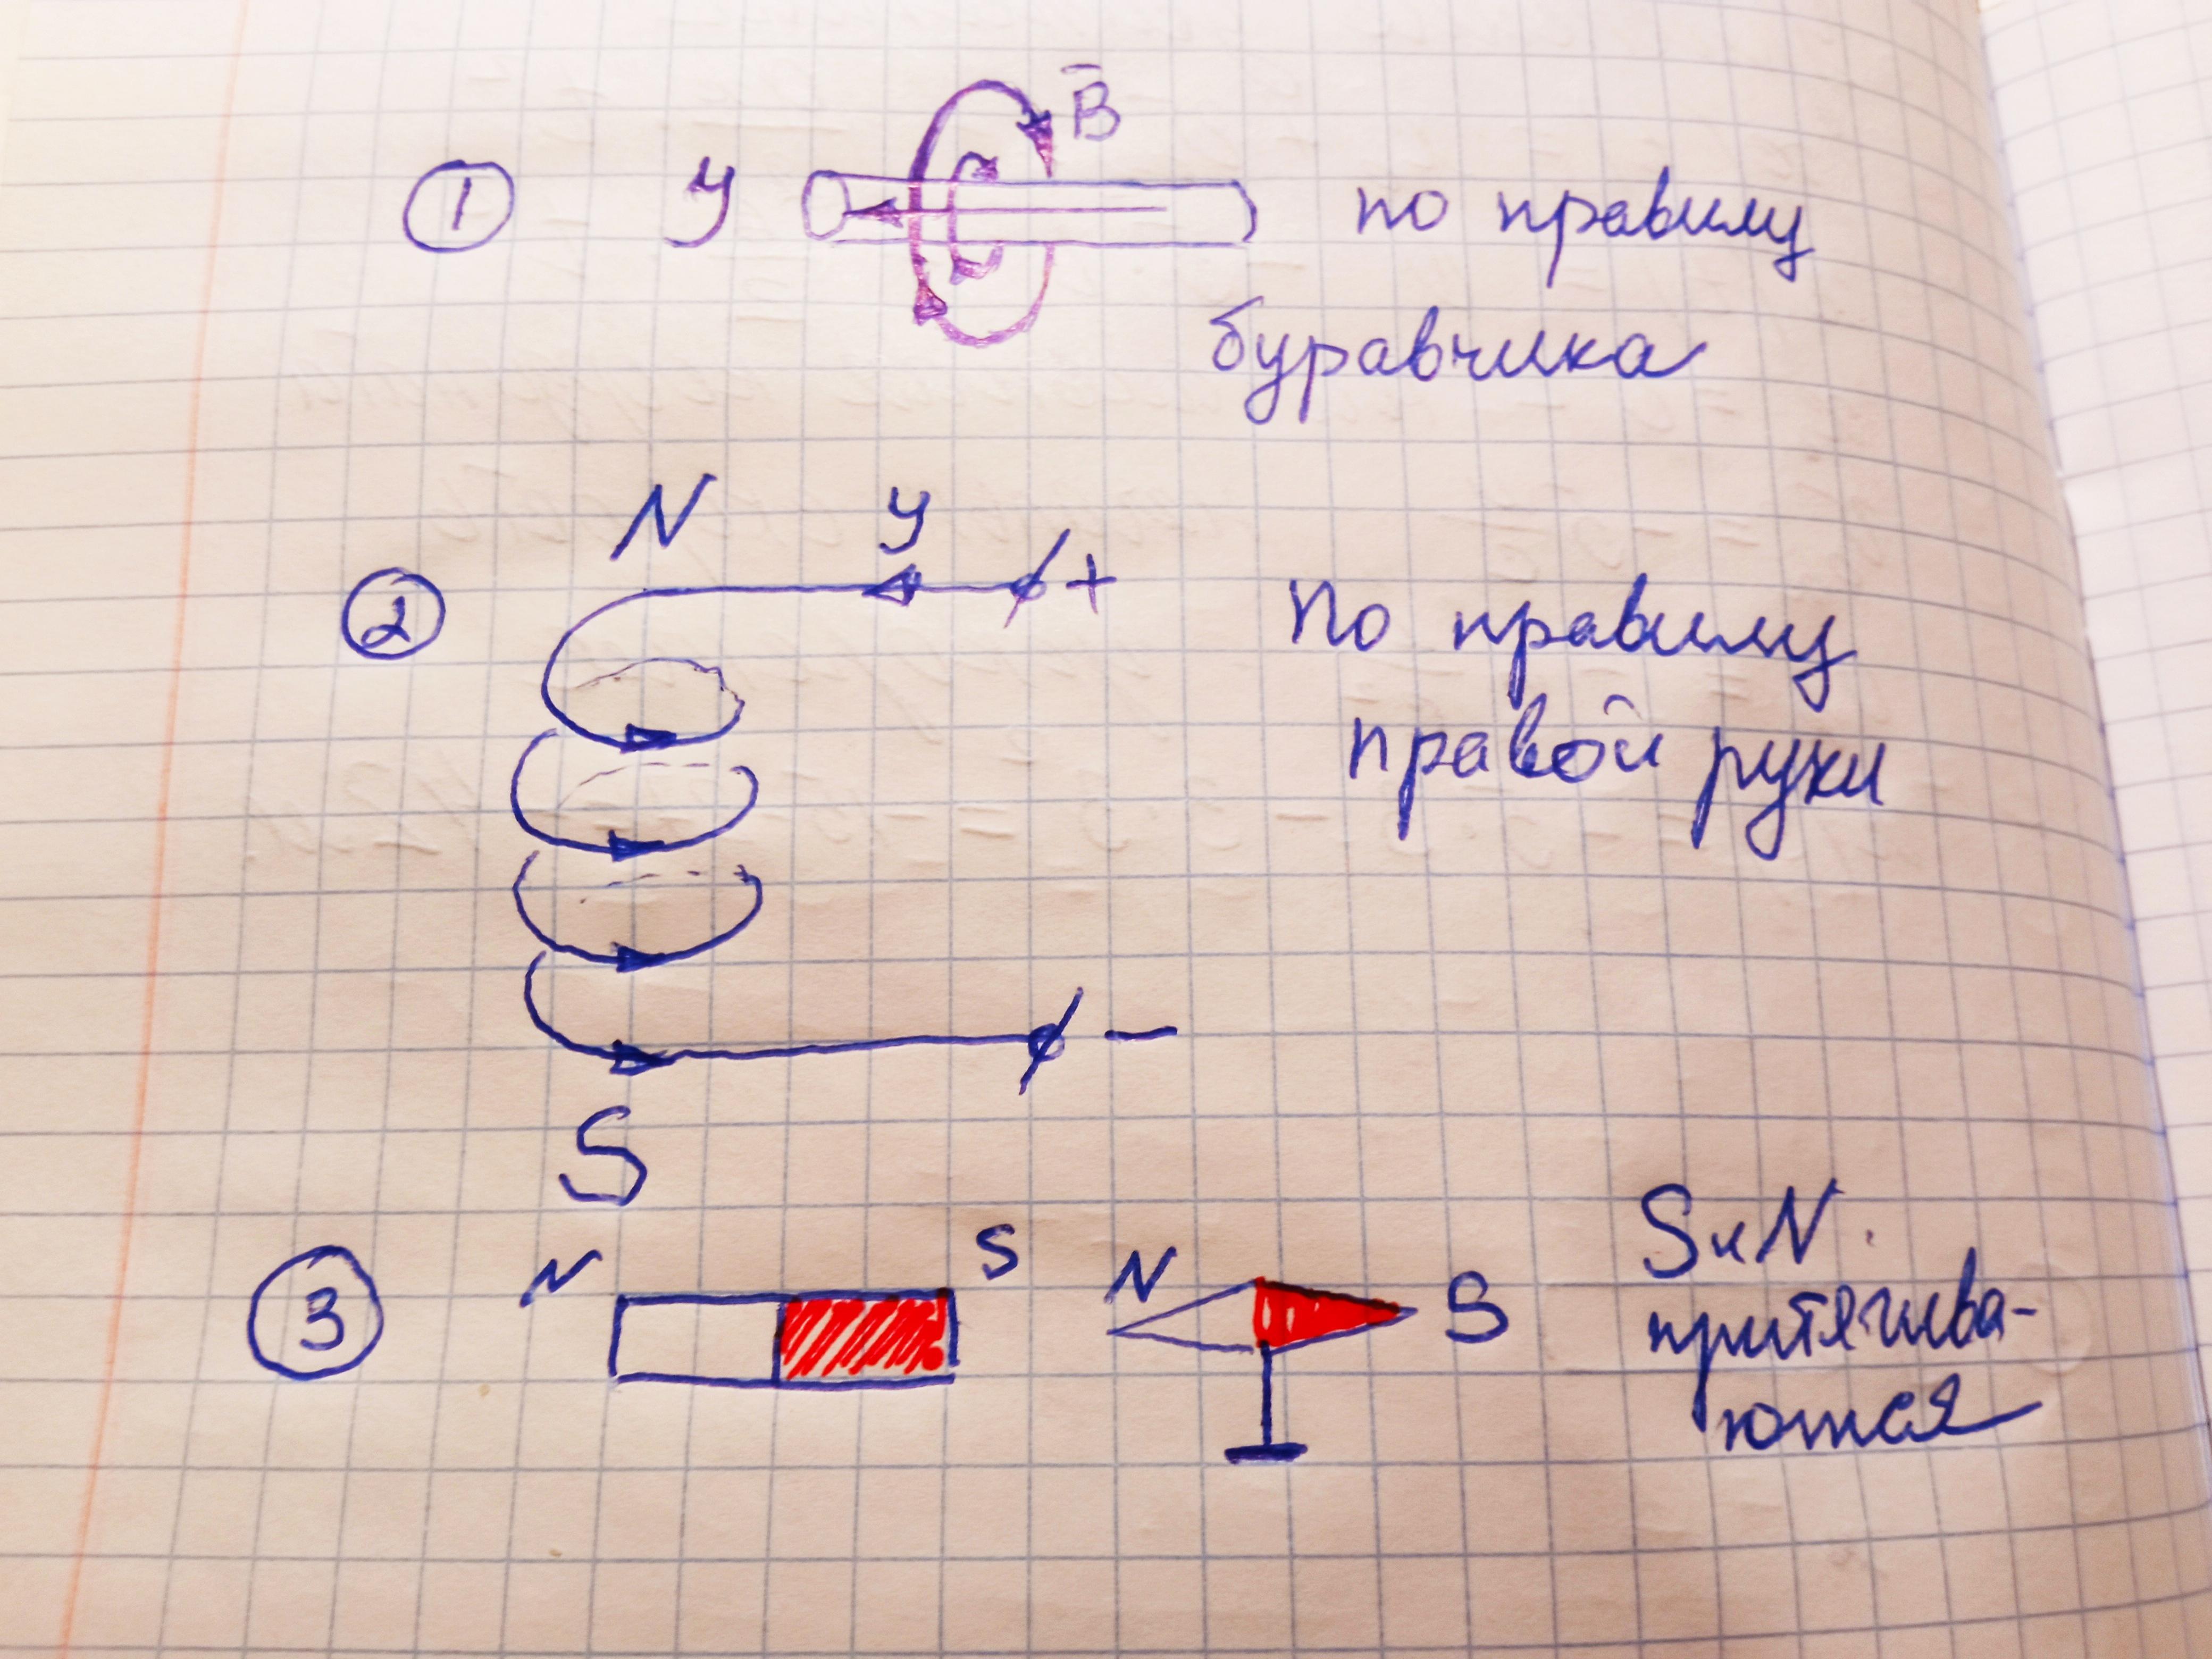 B̄
① У по правилу
буравчика
N У
② + По правилу
правой руки
−
S
③ N S N S S и N
притягива-
ются